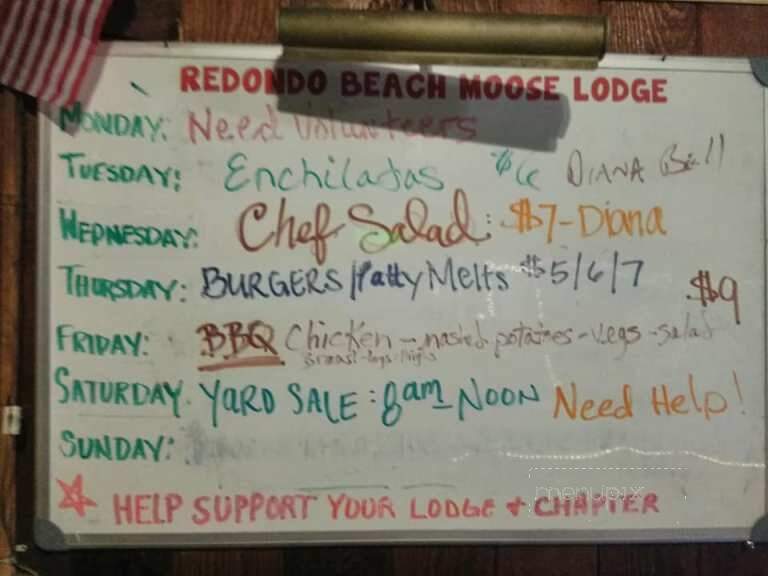 REDONDO BEACH MOOSE LODGE
MONDAY: Need Volunteers
TUESDAY: Enchiladas $6 DIANA Bill
WEDNESDAY: Chef Salad: $7-Diana
THURSDAY: BURGERS/Patty Melts $5/6/7
$9
FRIDAY: BBQ Chicken - mashed potatoes - Vegs - salad
Breast-legs-thighs
SATURDAY. YARD SALE: 8am-NOON Need Help!
SUNDAY:
HELP SUPPORT YOUR LODGE + CHAPTER
menupix